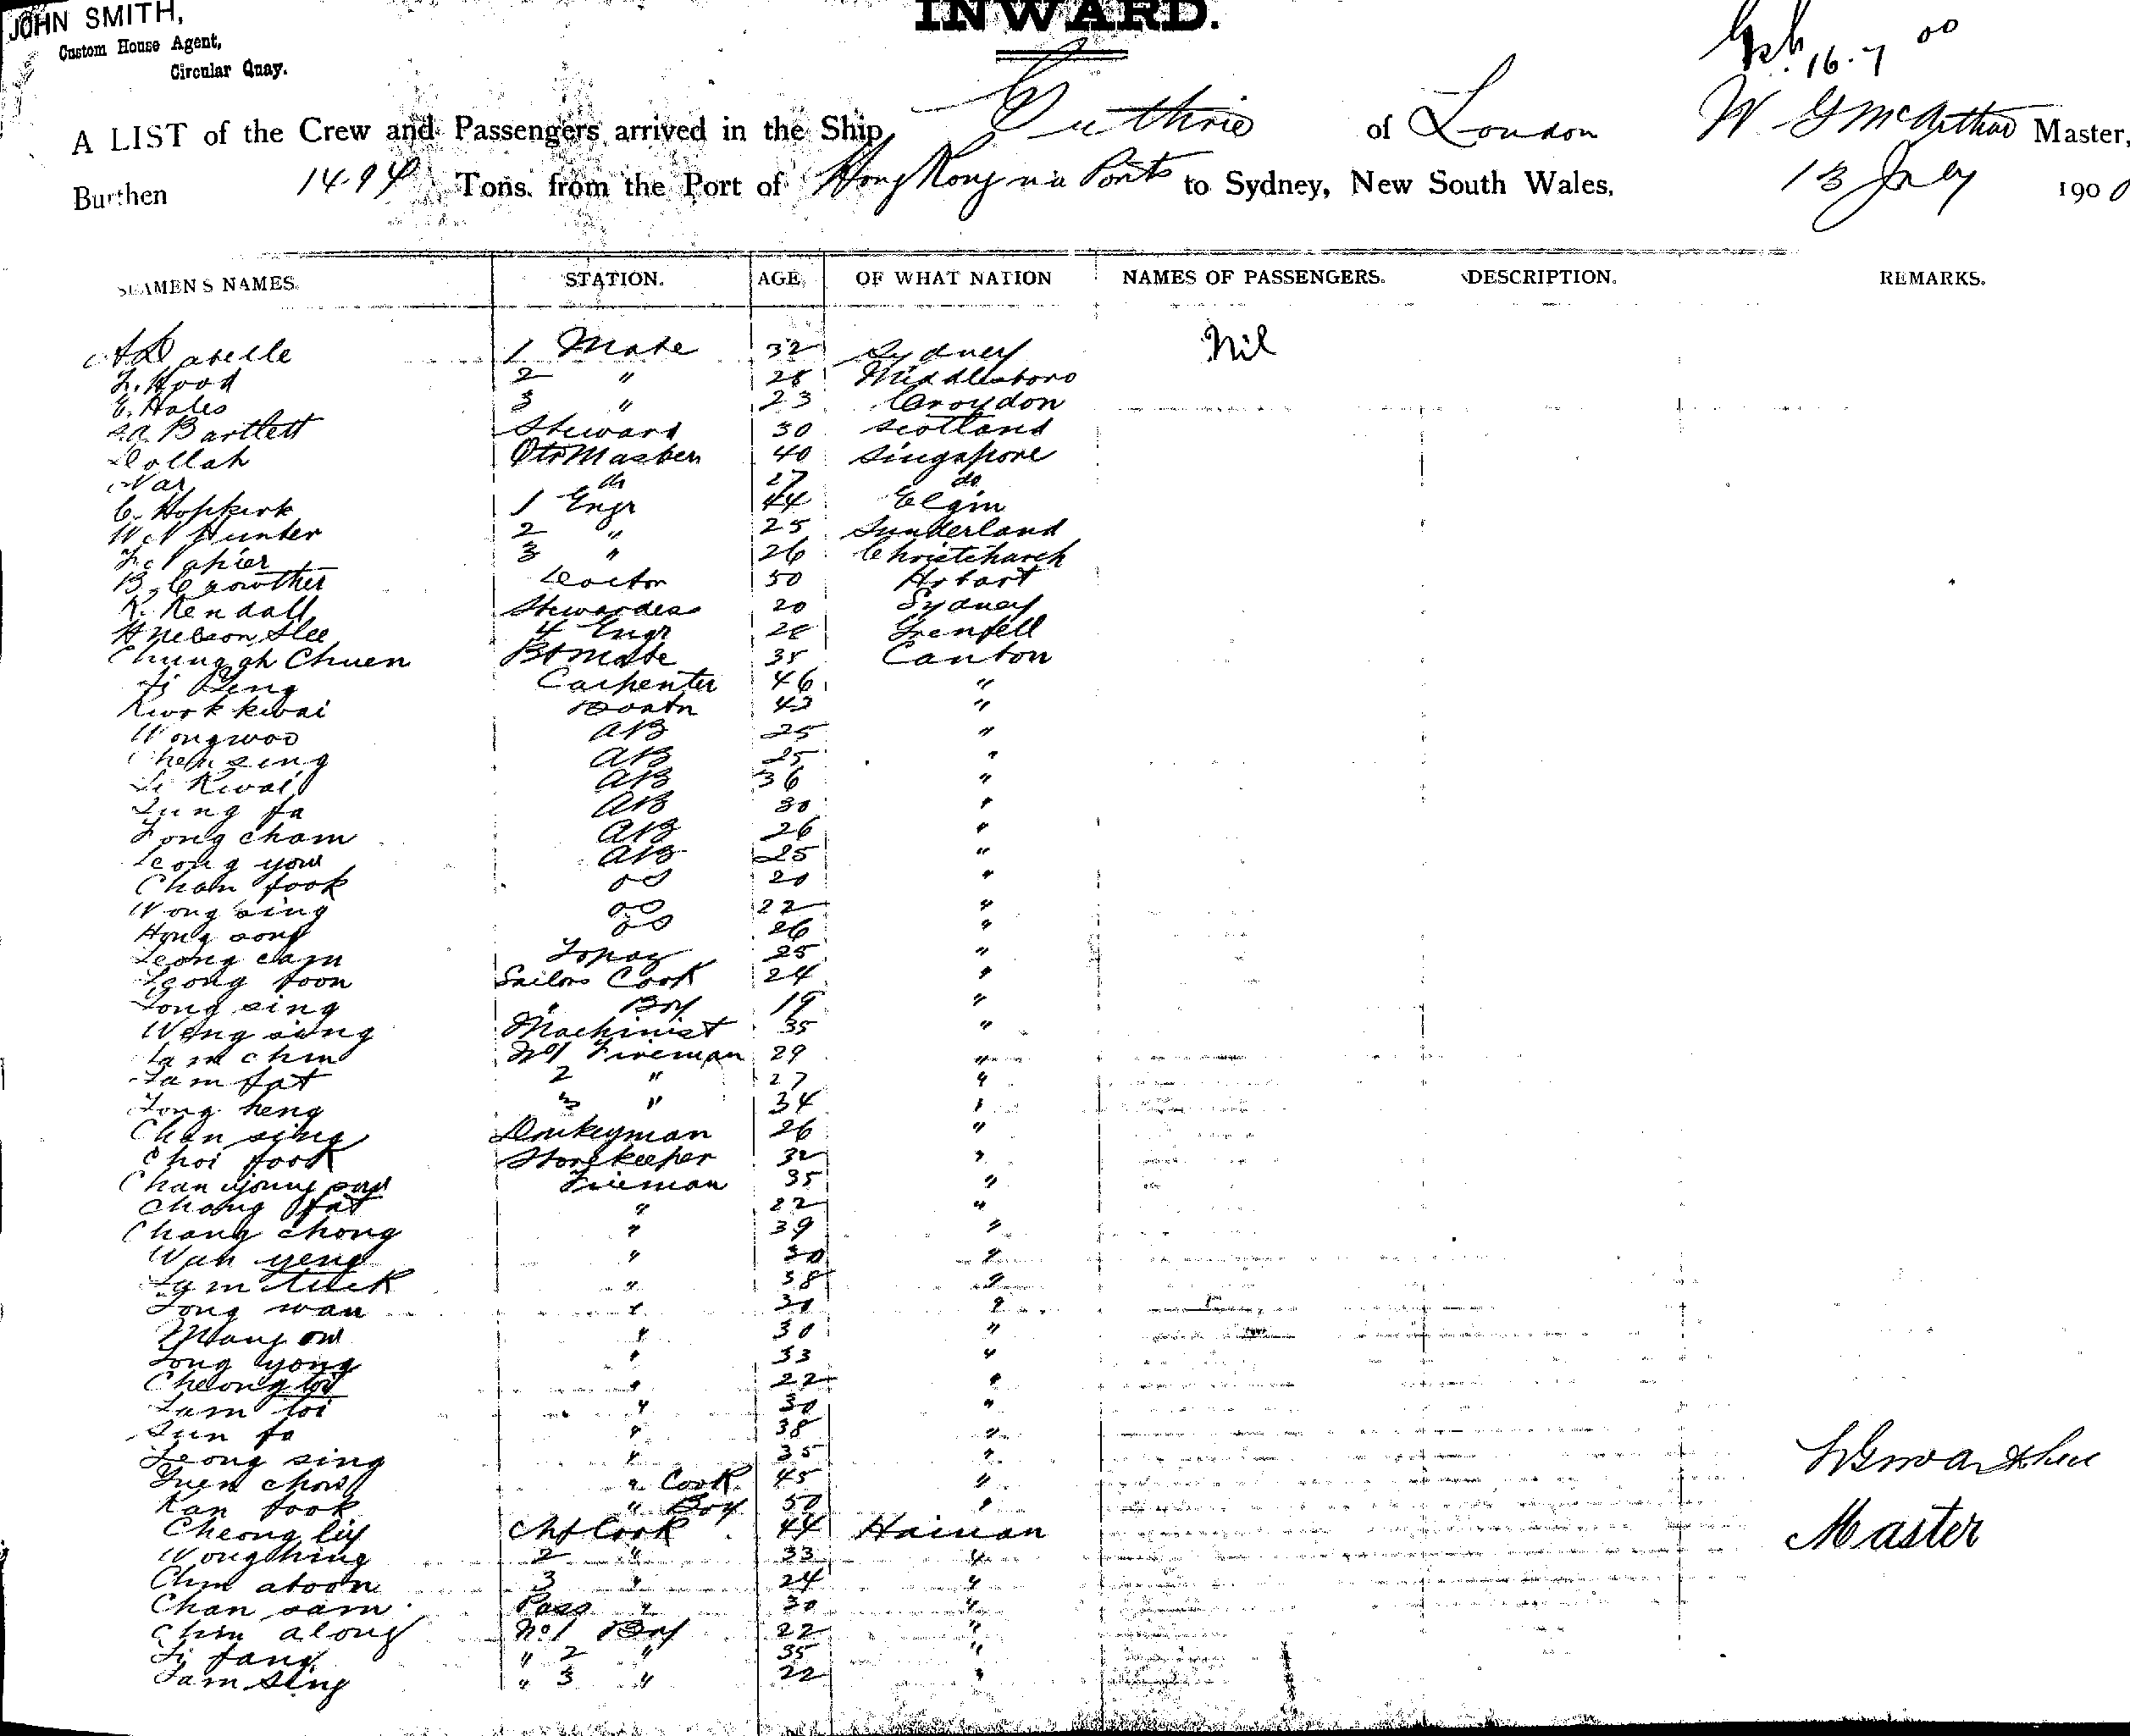 JOHN SMITH,
Custom House Agent,
Circular Quay.
INWARD.
16.7 00
A LIST of the Crew and Passengers arrived in the Ship Guthrie of London W G McArthur Master,
Burthen 1494 Tons. from the Port of Hong Kong via Ports to Sydney, New South Wales, 13 July 1900
SEAMENS NAMES. STATION. AGE. OF WHAT NATION NAMES OF PASSENGERS. DESCRIPTION. REMARKS.
1 Mate 32 Sydney Nil
Hood 2 " 28 Middlesboro
E. Hales 3 " 23 Croydon
Bartlett Steward 30 Scotland
Dollah Qtr Master 40 Singapore
do 27 do
C. Hopkirk 1 Engr 44 Elgin
Hunter 2 " 25 Sunderland
Napier 3 " 26 Christchurch
B. Crowther Doctor 50 Hobart
K. Kendall Stewardess 20 Sydney
H Nelson Slee 4 Engr 28 Grenfell
Chung ah Chuen Bt mate 35 Canton
Carpenter 46 "
Kwok kwai Boatn 43 "
Wong woo AB 25 "
sing AB 25 "
Li Kwai AB 36 "
fa AB 30 "
Fong cham AB 26 "
Leong yow AB 25 "
Chan fook OS 20 "
Wong sing OS 22 "
song OS 26 "
Leong cam Topaz 25 "
Leong foon Sailors Cook 24 "
sing " Boy 19 "
Wong sang Machinist 35 "
Lam No 1 Fireman 29 "
Lam fat 2 " 27 "
heng 3 " 34 "
Chan sing Donkeyman 26 "
Choi fook Storekeeper 32 "
Chan Fireman 35 "
Chang fat " 22 "
Chang chong " 39 "
Wah yeng " 30 "
Lam " 38 "
wan " 30 "
" 30 "
yong " 33 "
Cheong loi " 22 "
Lam loi " 30 "
fa " 38 "
Leong sing " 35 "
" Cook 45 "
Kan fook " Boy 50 "
Cheong Chf Cook 44 Hainan
Wong hing 2 " 33 "
Chin atoon 3 " 24 "
Chan sam Pass " 30 "
Chin along No 1 Boy 22 "
Li " 2 " 35 "
sing " 3 " 22 "
Master